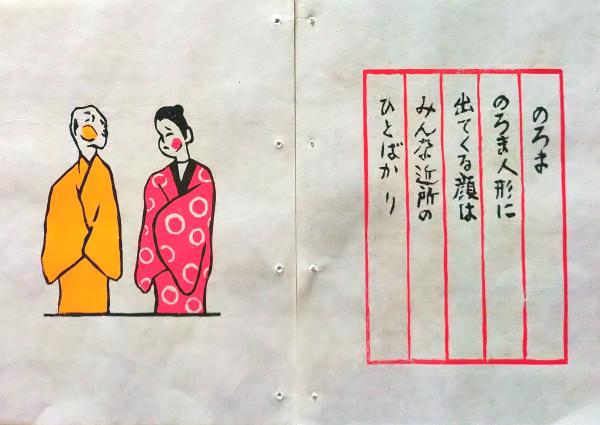 のろま
のろま人形に
出てくる顔は
みんな近所の
ひとばかり